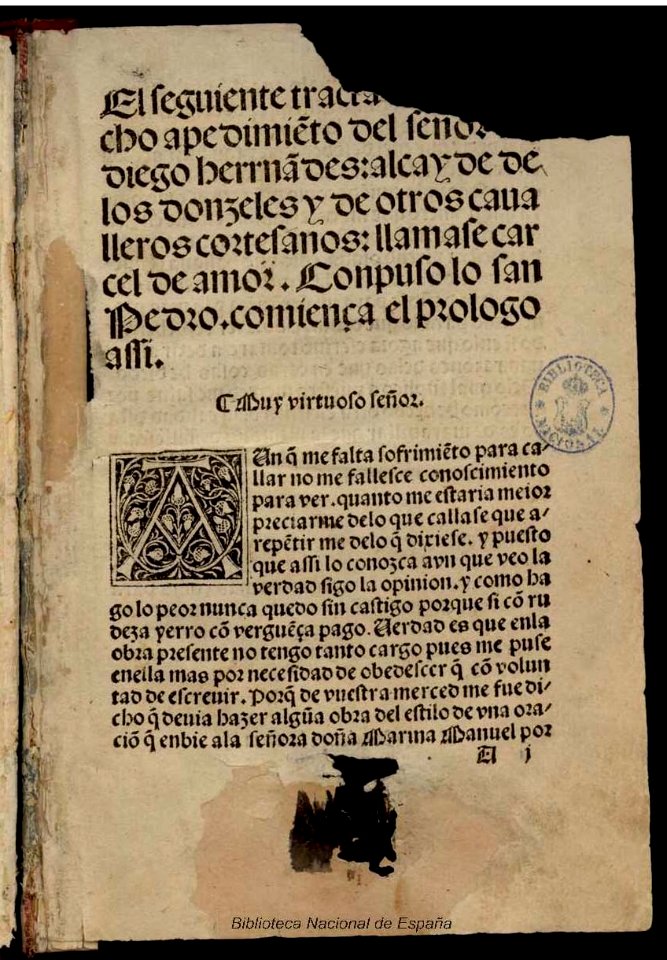 El seguiente
cho apedimiẽto del
diego herrnãdes: alcayde de
los donzeles y de otros caua
lleros cortesanos: llamase car
cel de amor. Conpuso lo san
Pedro. comiença el prologo
assi.
¶ Muy virtuoso señor.
AUn q̃ me falta sofrimiẽto para ca/
llar no me fallesce conoscimiento
para ver. quanto me estaria meior
preciarme delo que callase que a/
repẽtir me delo q̃ dixiese. y puesto
que assi lo conozca avn que veo la
verdad sigo la opinion. y como ha
go lo peor nunca quedo sin castigo porque si cõ ru
deza yerro cõ verguẽça pago. Uerdad es que enla
obra presente no tengo tanto cargo pues me puse
enella mas por necesidad de obedescer q̃ cõ volun
tad de escreuir. Porq̃ de vuestra merced me fue di/
cho q̃ deuia hazer algũa obra del estilo de vna ora/
ciõ q̃ enbie ala señora doña Marina Manuel por
A j
BIBLIOTECA NACIONAL
Biblioteca Nacional de España